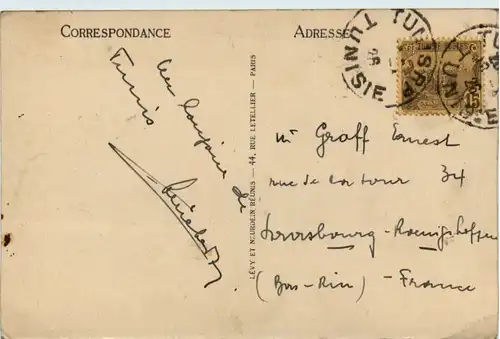 CORRESPONDANCE
ADRESSE
TUNIS R.P.
TUNISIE
TUNISIE
15
un bonjour de
Tunis
LÉVY ET NEURDEIN RÉUNIS — 44, RUE LETELLIER — PARIS
Mr Graff Ernest
rue de la tour 34
Strasbourg - Koenigshoffen
(Bas-Rhin) - France